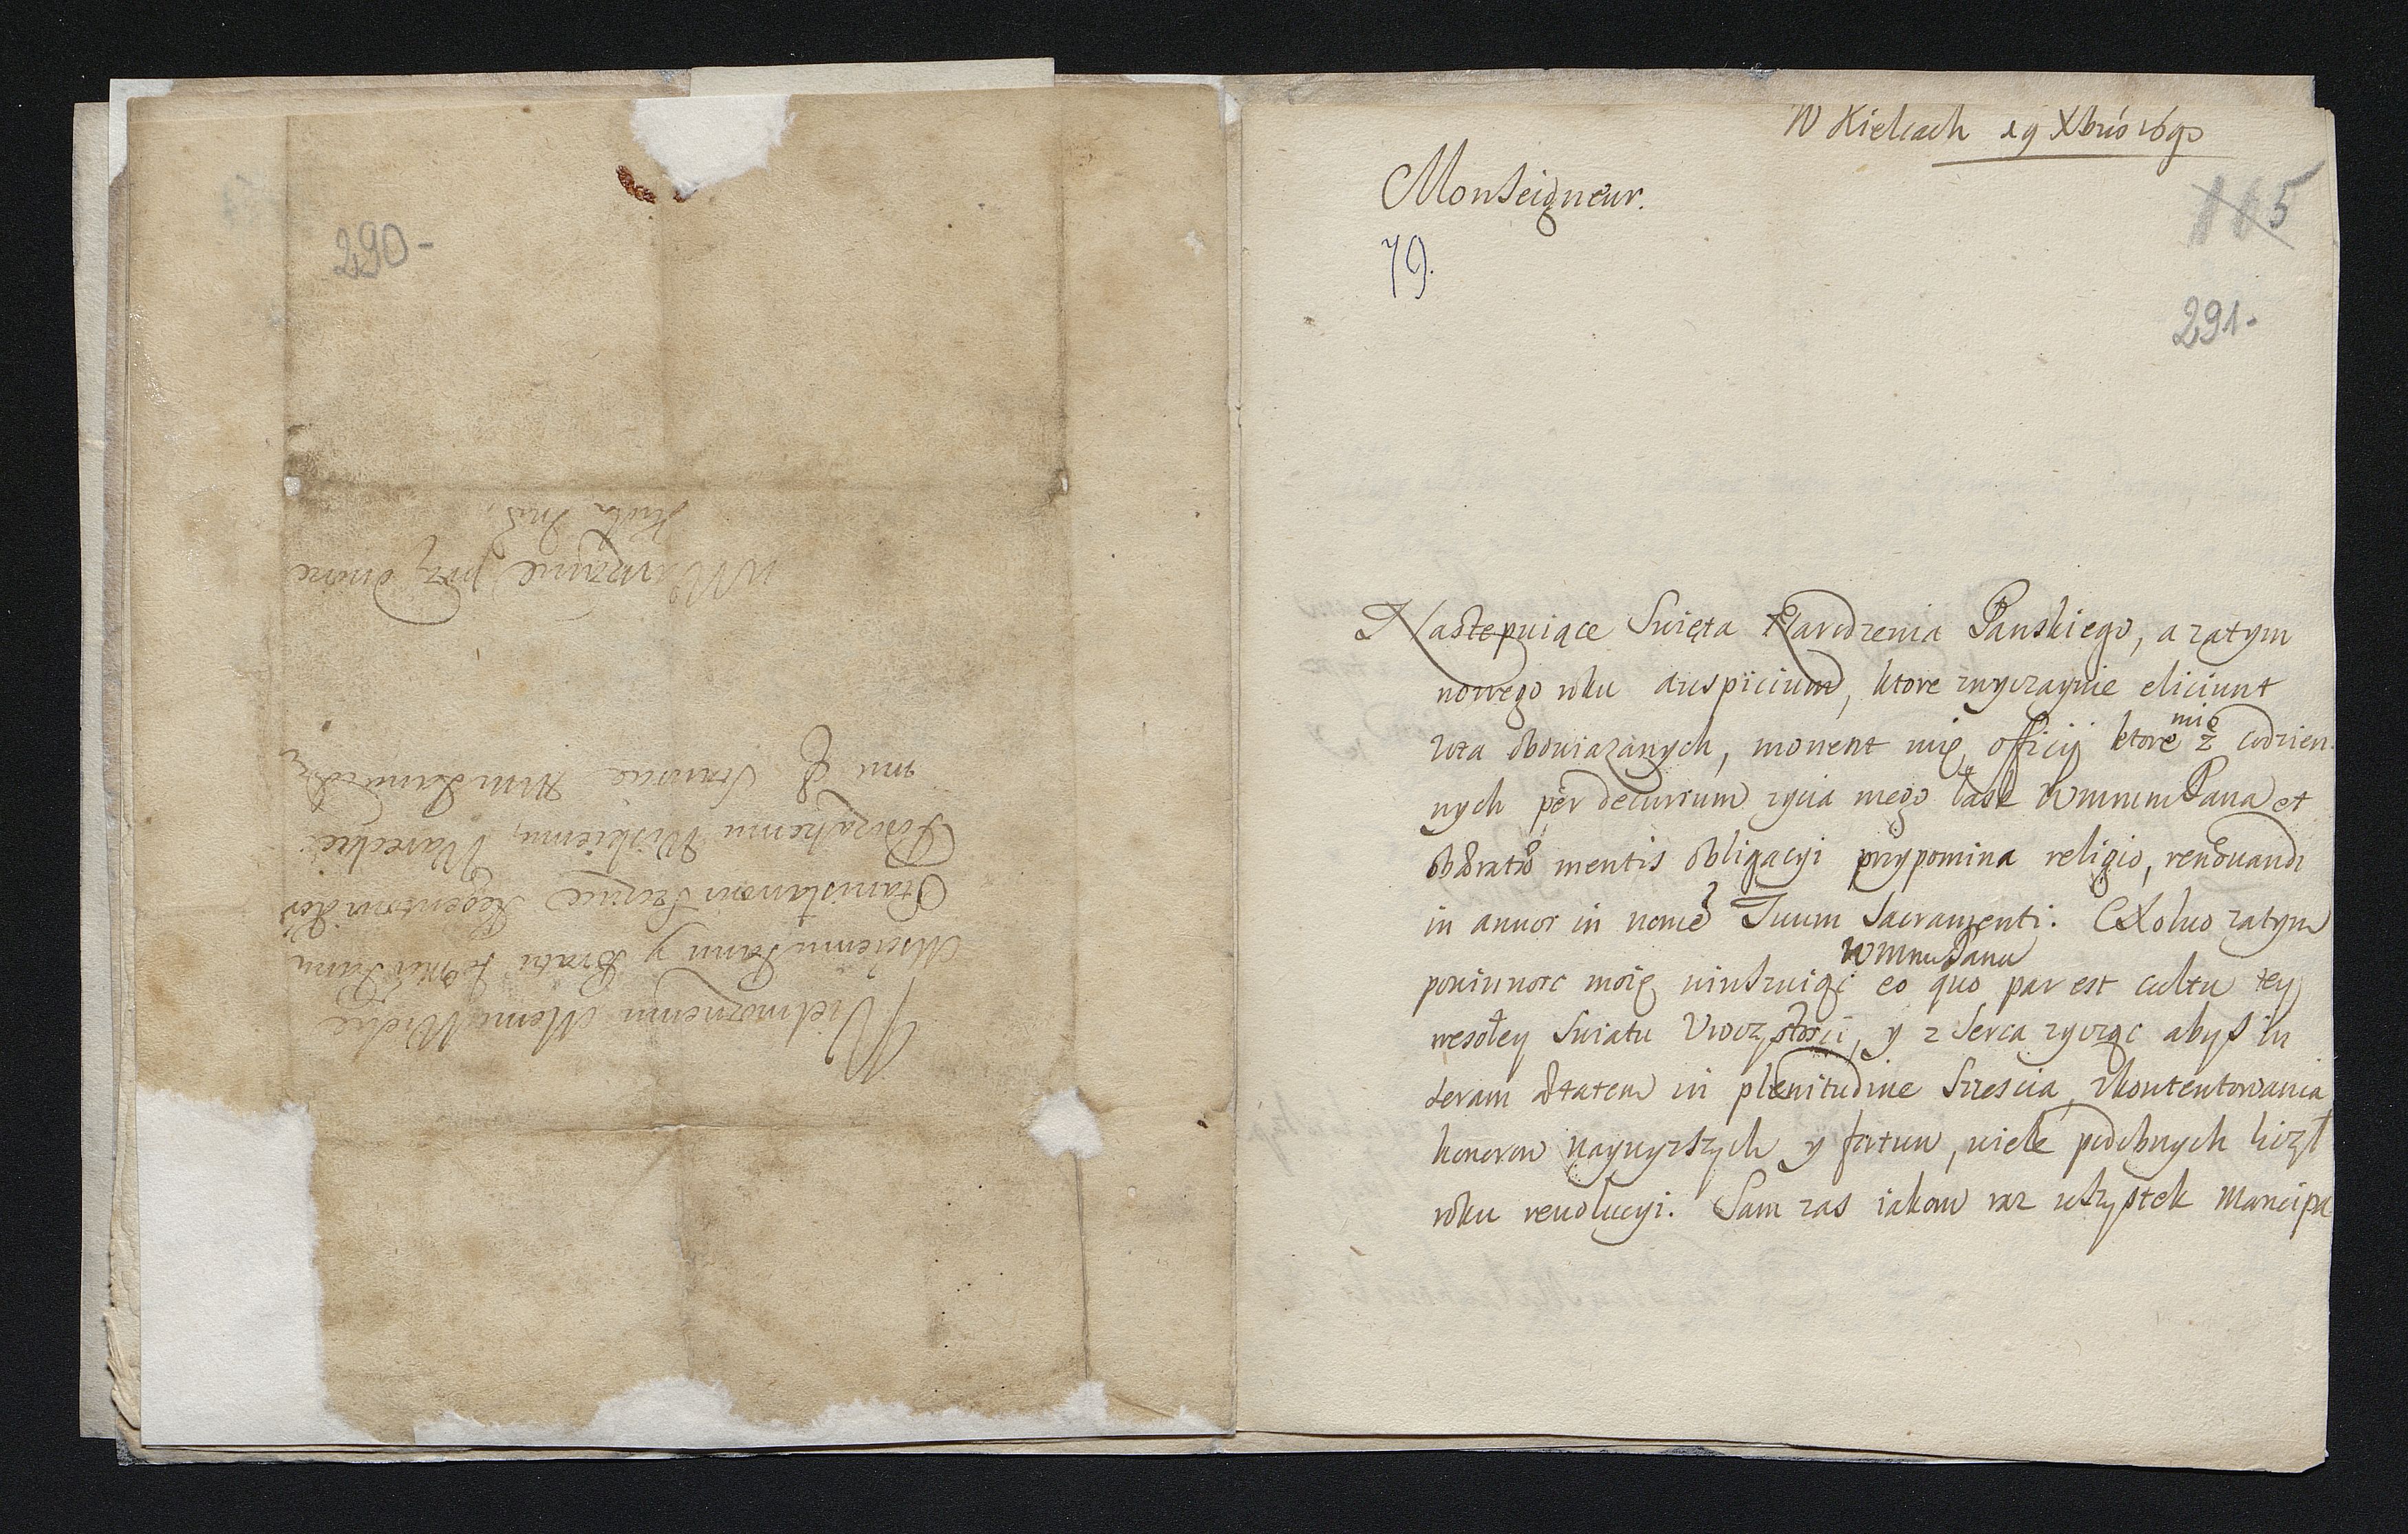 290-
Wielmoznemu Memu Wielce
Msciemu Panu y Bratu Je Mci Panu
Stanisławowi Szczuce Regentowi
Wiskiemu, Wareckie
mu &c. Staroscie
w Warszawie przy dworze
Krola
W Kielcach 19 Xbris 1690
Monseigneur.
79.
165
291-
Nastepuiące Swięta Narodzenia Panskiego, a zatym
nowego roku auspicium, ktore zwyczaynie eliciunt
vota obowiazanych, monent mię officij ktore mię z codzien
nych per decursum zycia mego łask WmmmPana et
obstrato mentis obligacyi przypomina religio, renovandi
in annos in nomen Tuum Sacramenti. Exoluo zatym
powinnosc moię winszuiąc WmmuPanu eo quo par est cultu tey
wesołey swiatu Vroczystosci, y z serca zycząc abys in
seram ætatem in plenitudine szczescia, vkontentowania
honorow naywyzszych y fortun, wiele podobnych liczył
roku revolucyi. Sam zas iakom raz wszystek mancipa